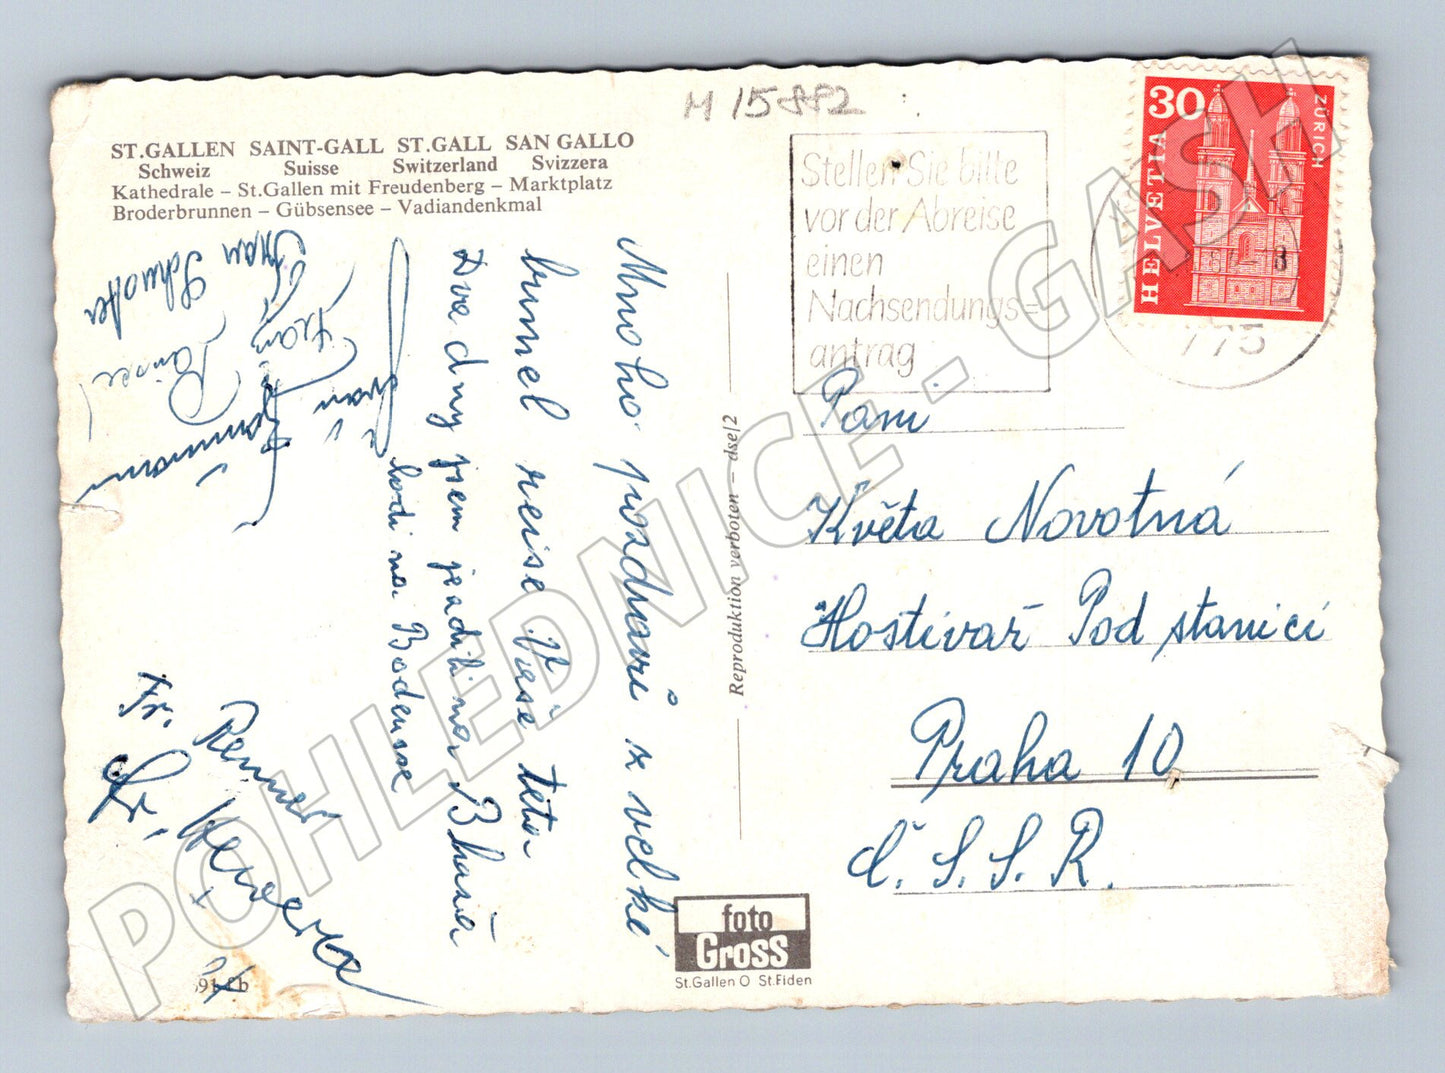 M 15882
ST.GALLEN SAINT-GALL ST.GALL SAN GALLO
Schweiz Suisse Switzerland Svizzera
Kathedrale – St.Gallen mit Freudenberg – Marktplatz
Broderbrunnen – Gübsensee – Vadiandenkmal
Stellen Sie bitte
vor der Abreise
einen
Nachsendungs=
antrag
30
HELVETIA
ZÜRICH
775
Mnoho pozdravů z velké
bumel reise Vaše teta
Dva dny jsem
hodina Bodensee
Fr. Renner
Reproduktion verboten – dse/2
Paní
Květa Novotná
Hostivař Pod stanicí
Praha 10
Č.S.S.R.
foto
Gross
St.Gallen O St.Fiden
POHLEDNICE - GASH